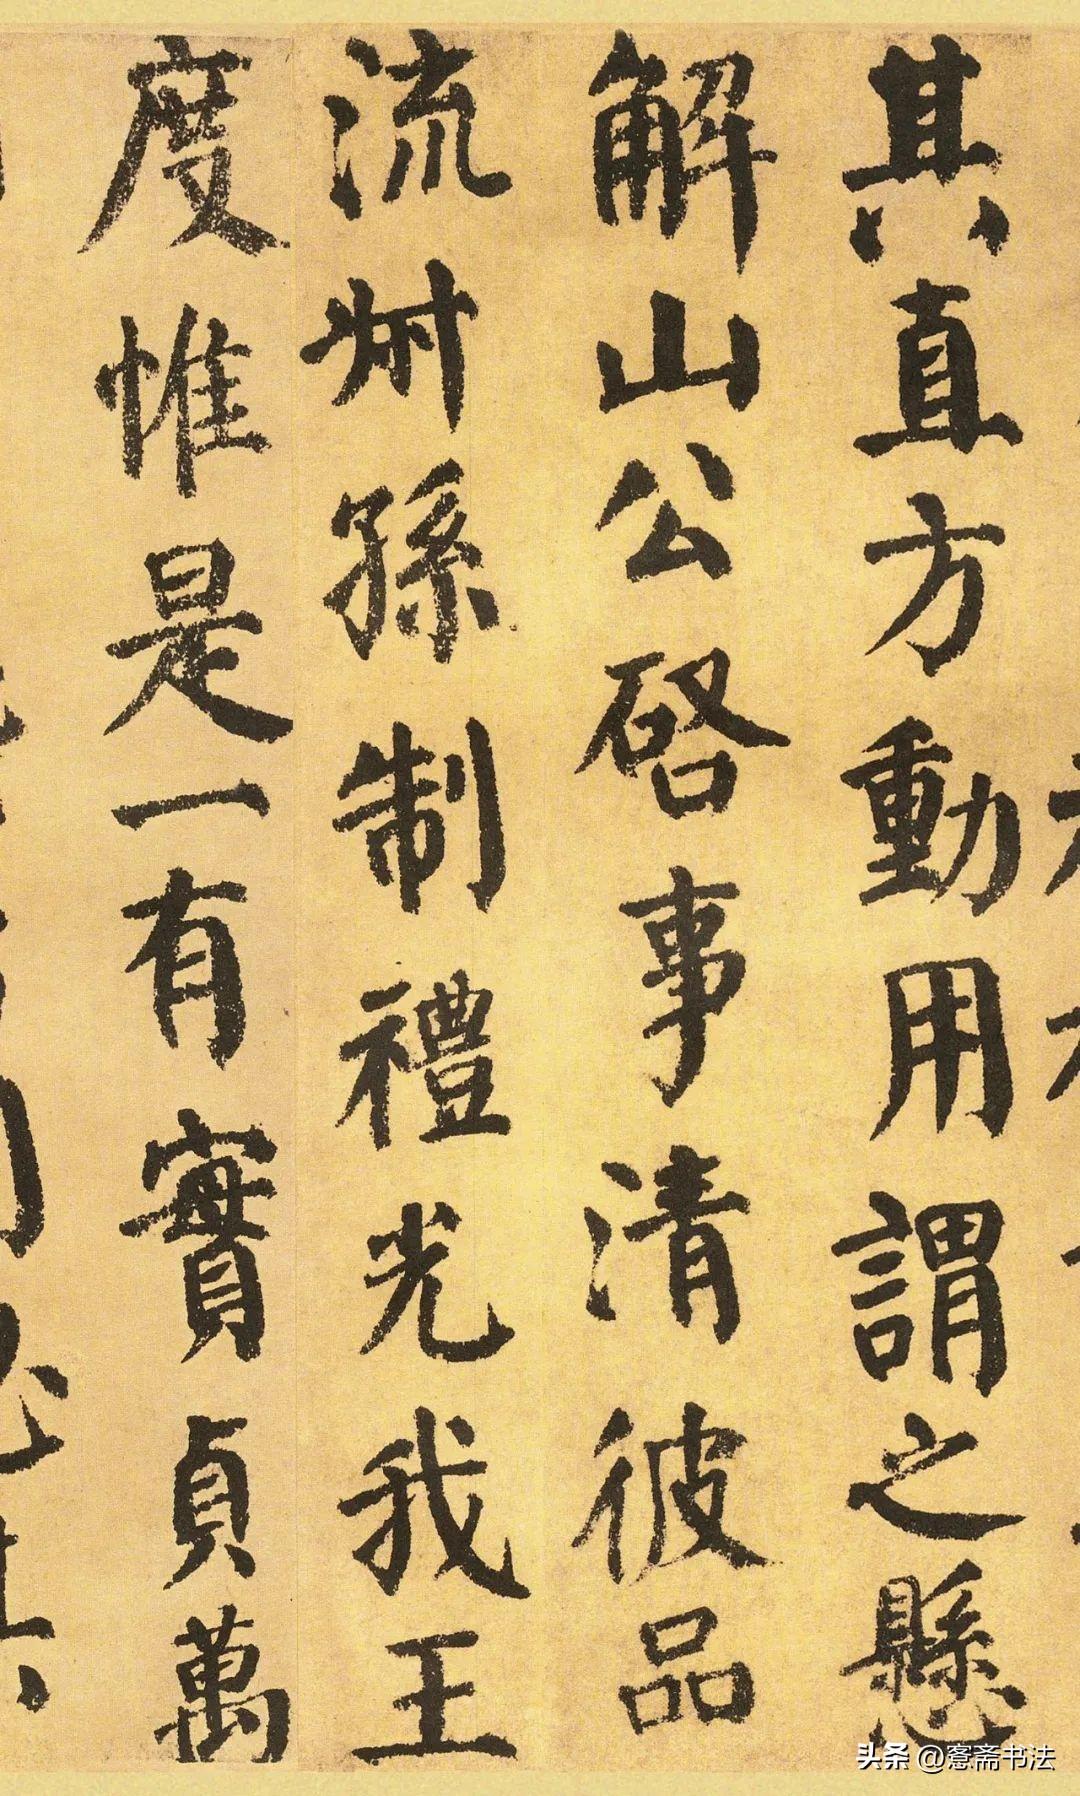 其直方動用謂之懸
解山公啓事清彼品
流叔孫制禮光我王
度惟是一有實貞萬
头条 @愙斋书法